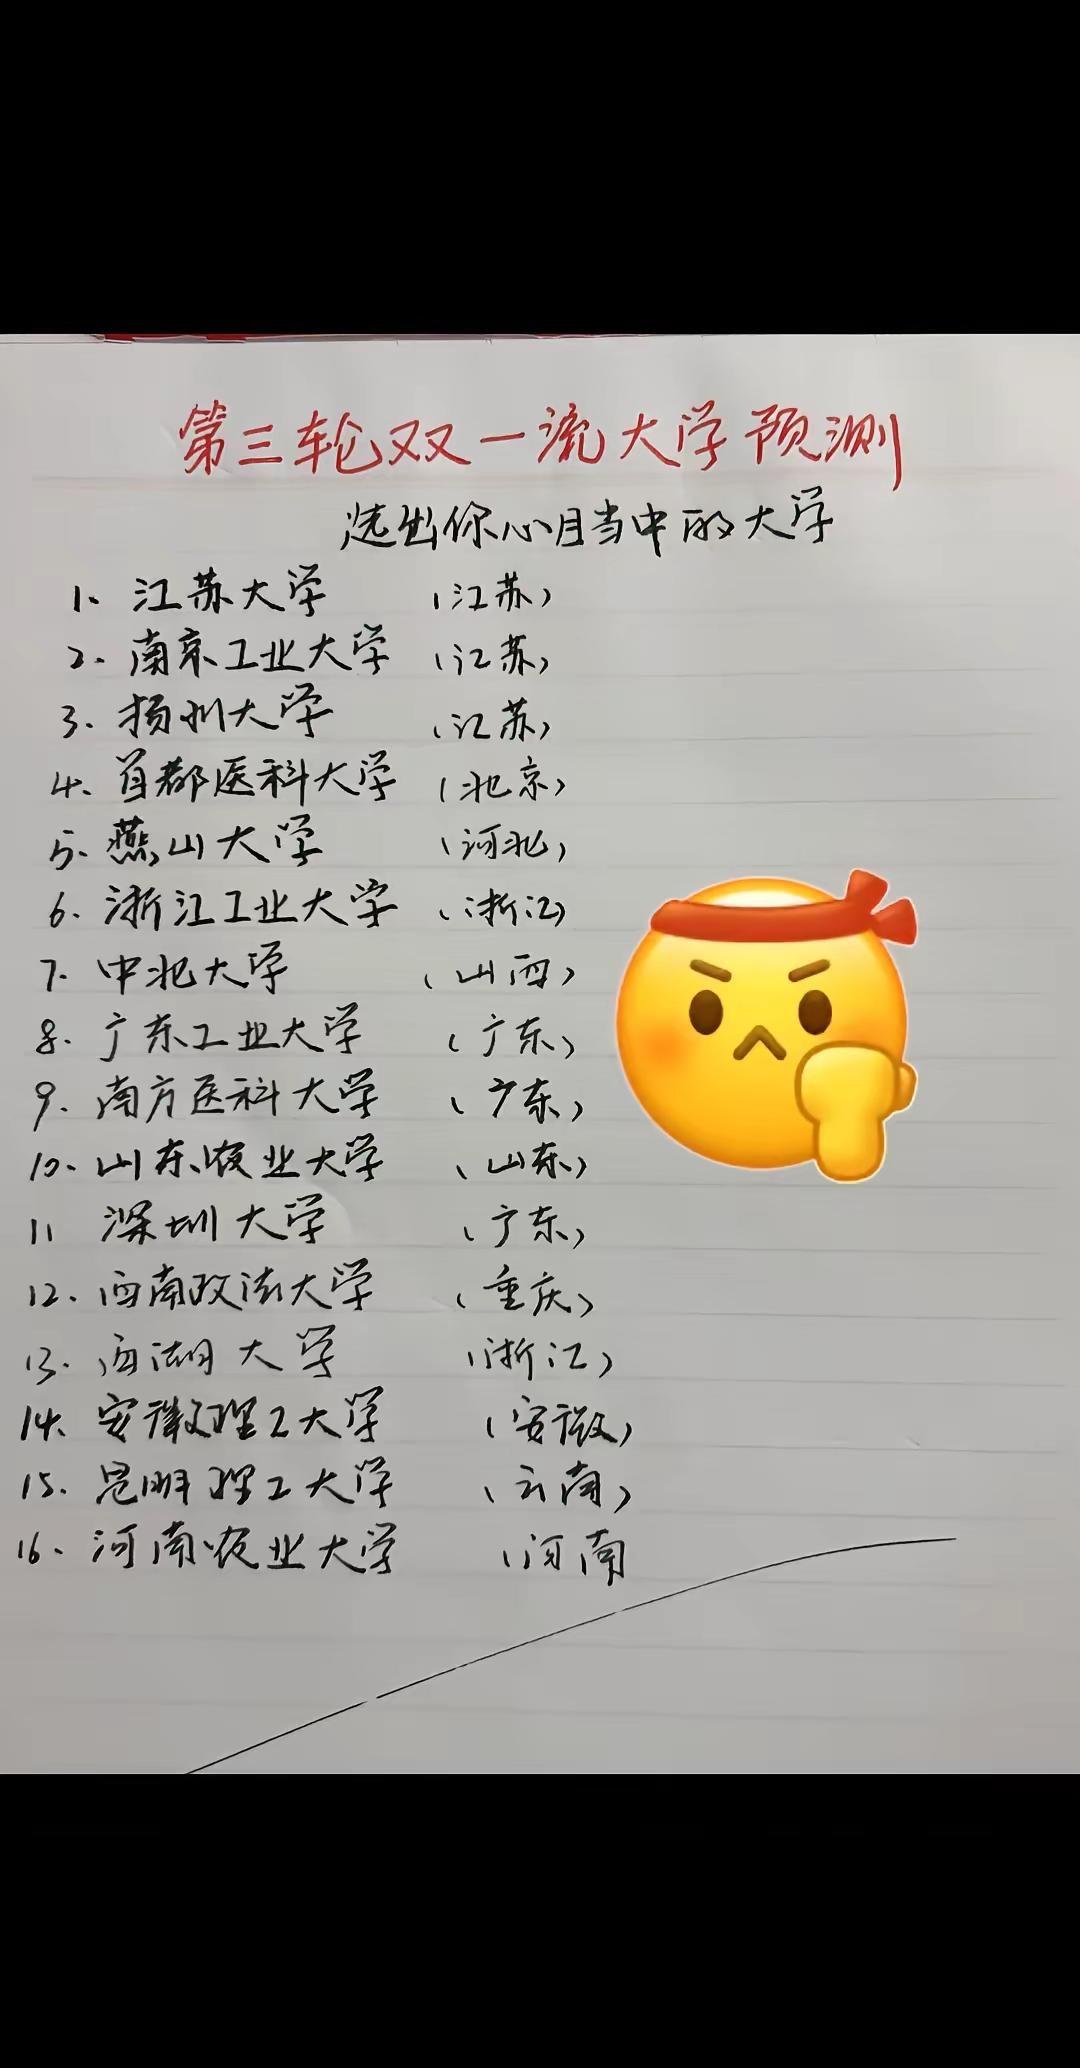 第三轮双一流大学预测
选出你心目当中的大学
1、江苏大学 (江苏)
2.南京工业大学 (江苏)
3.扬州大学 (江苏)
4、首都医科大学 (北京)
5.燕山大学 (河北)
6.浙江工业大学 (浙江)
7.中北大学 (山西)
8.广东工业大学 (广东)
9.南方医科大学 (广东)
10.山东农业大学 (山东)
11 深圳大学 (广东)
12.西南政法大学 (重庆)
13.西湖大学 (浙江)
14、安徽理工大学 (安徽)
15.昆明理工大学 (云南)
16.河南农业大学 (河南